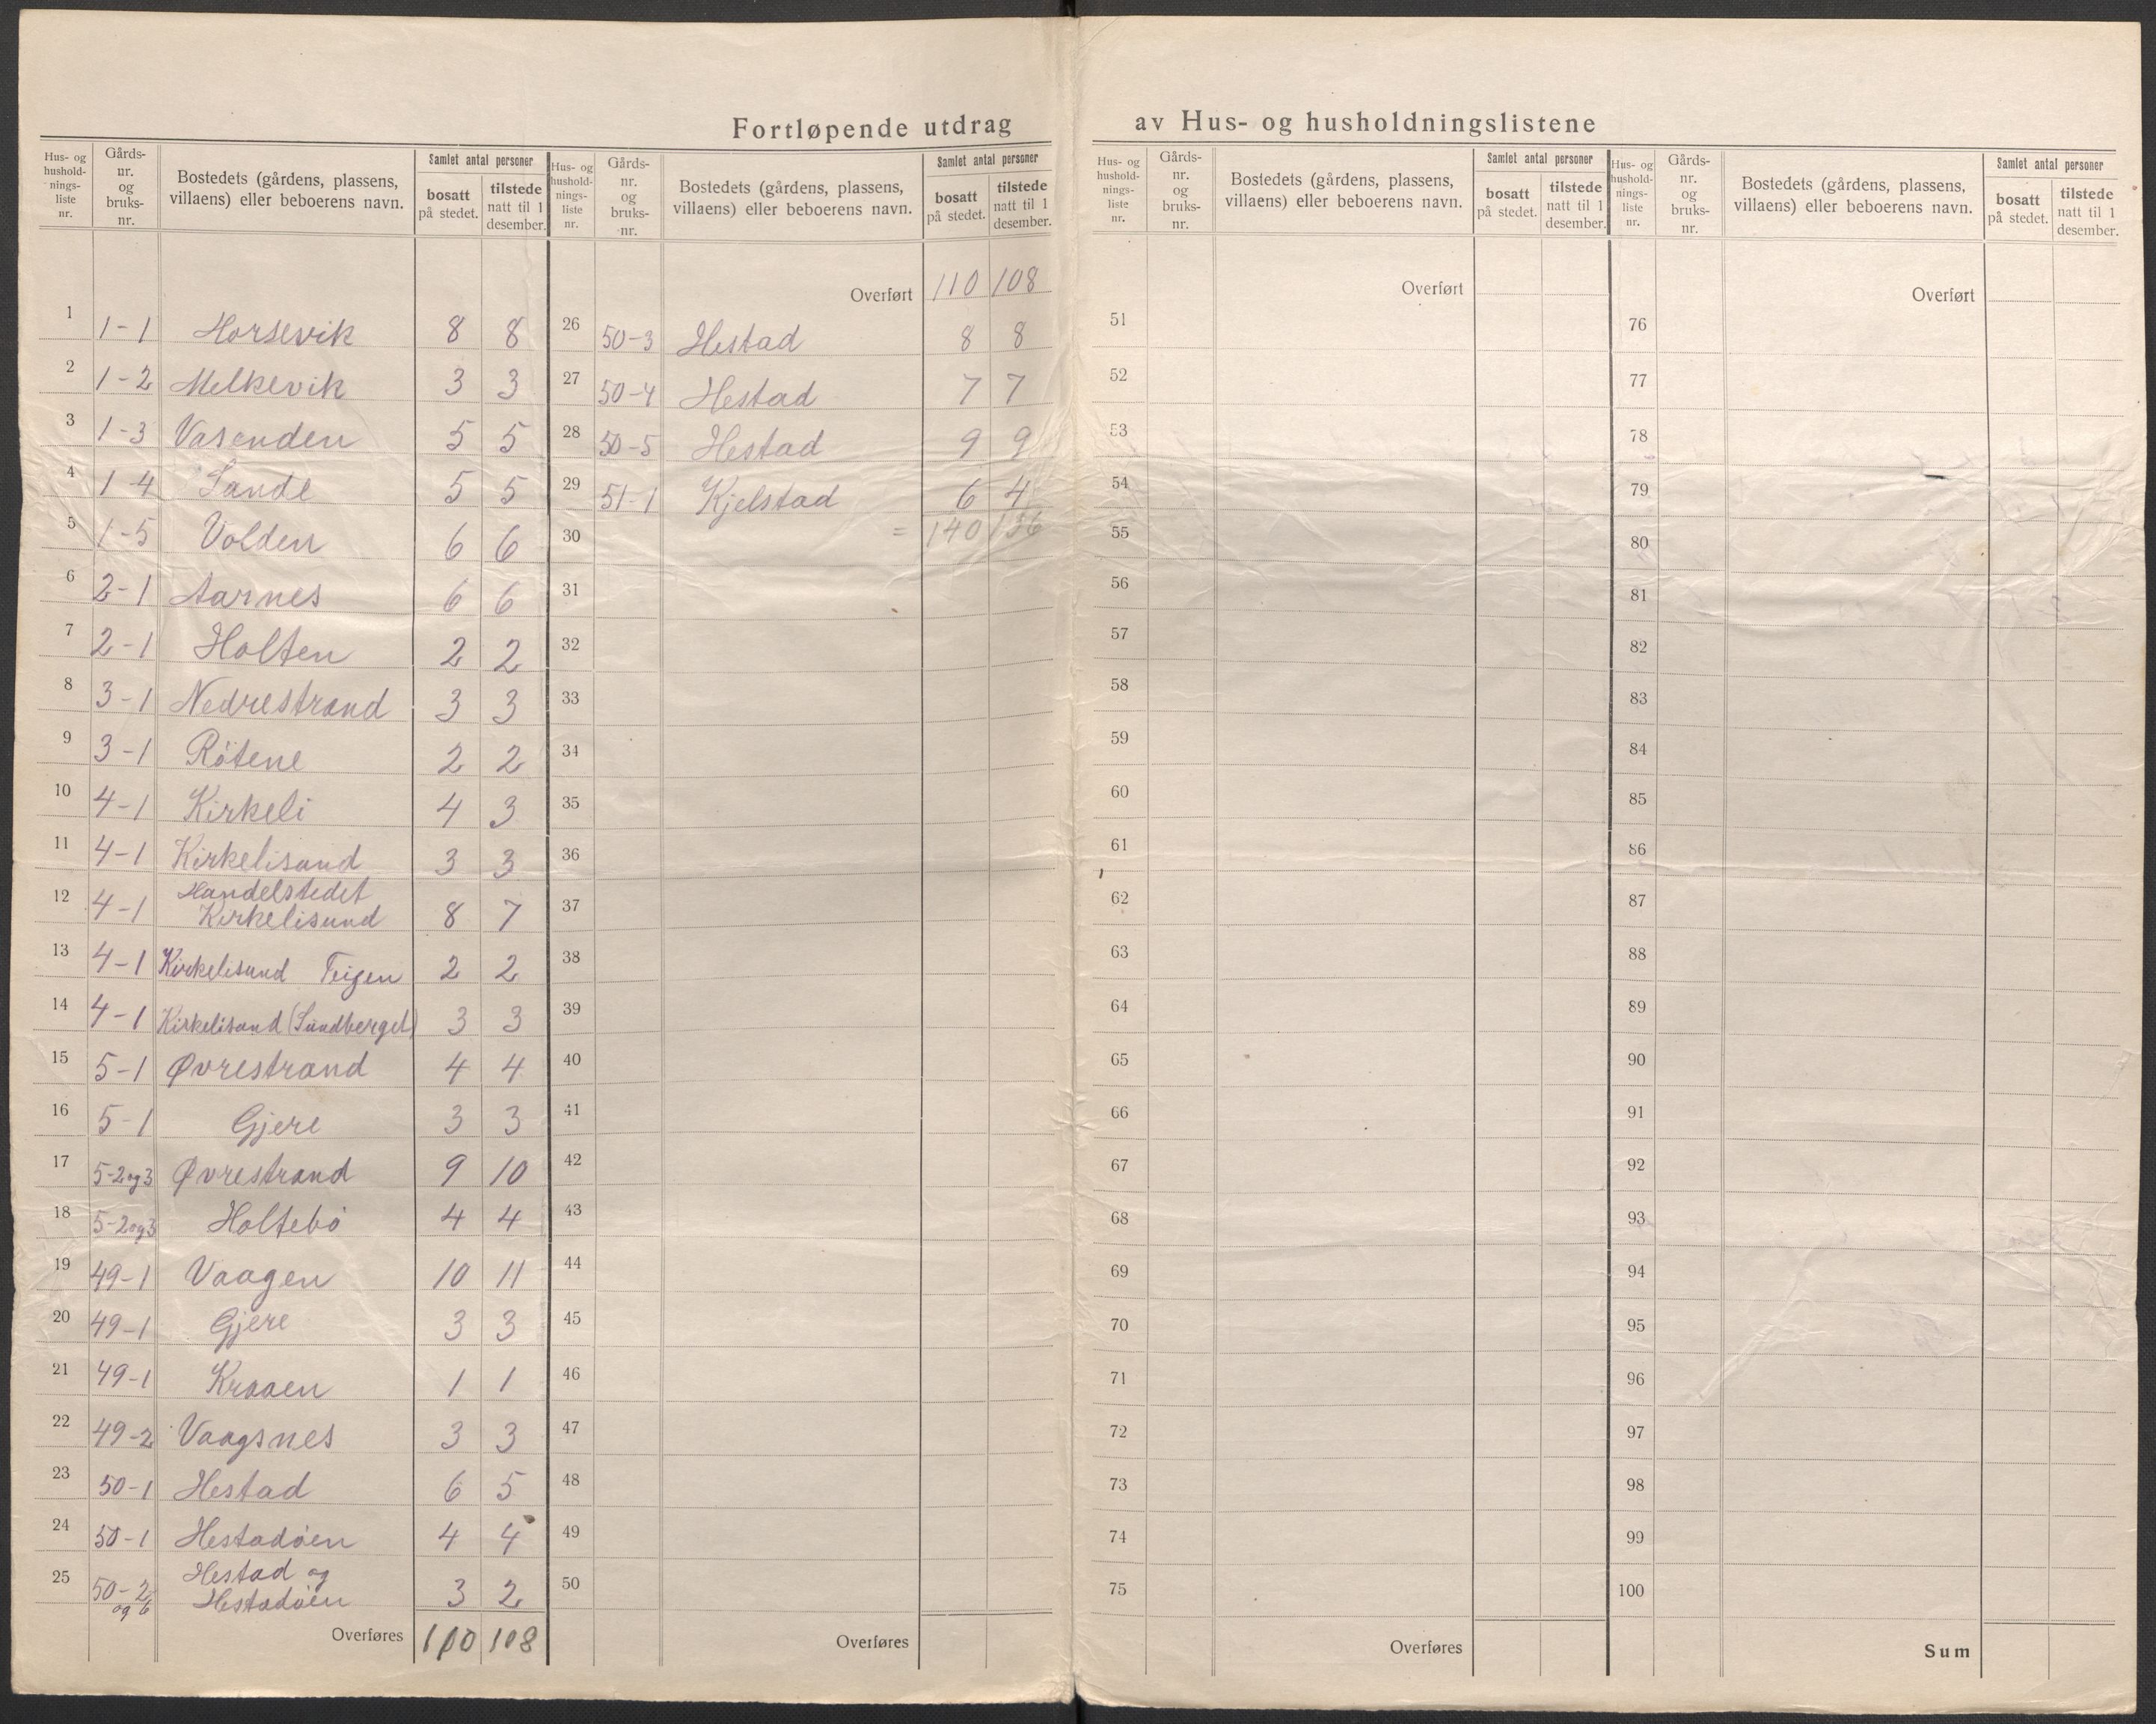 Fortløpende utdrag av Hus- og husholdningslistene
Hus- og husholdningsliste nr. | Gårdsnr. og bruksnr. | Bostedets (gårdens, plassens, villaens) eller beboerens navn. | Samlet antal personer | bosatt på stedet. | tilstede natt til 1 desember.
1 1-1 Horsevik 8 8
2 1-2 Melkevik 3 3
3 1-3 Vasenden 5 5
4 1-4 Sande 5 5
5 1-5 Volden 6 6
6 2-1 Aarnes 6 6
7 2-1 Holten 2 2
8 3-1 Nedrestrand 3 3
9 3-1 Røtene 2 2
10 4-1 Kirkeli 4 3
11 4-1 Kirkelisund 3 3
12 4-1 Handelstedet Kirkelisund 8 7
13 4-1 Kirkelisund Teigen 2 2
14 4-1 Kirkelisund (Sundberget) 3 3
15 5-1 Øvrestrand 4 4
16 5-1 Gjere 3 3
17 5-2 og 3 Øvrestrand 9 10
18 5-2 og 3 Holtebø 4 4
19 49-1 Vaagen 10 11
20 49-1 Gjere 3 3
21 49-1 Kraaen 1 1
22 49-2 Vaagsnes 3 3
23 50-1 Hestad 6 5
24 50-1 Hestadøen 4 4
25 50-2 og 6 Hestad og Hestadøen 3 2
Overføres 110 108
Hus- og husholdningsliste nr. | Gårdsnr. og bruksnr. | Bostedets (gårdens, plassens, villaens) eller beboerens navn. | Samlet antal personer | bosatt på stedet. | tilstede natt til 1 desember.
Overført 110 108
26 50-3 Hestad 8 8
27 50-4 Hestad 7 7
28 50-5 Hestad 9 9
29 51-1 Kjelstad 6 4
30 = 140 136
31
32
33
34
35
36
37
38
39
40
41
42
43
44
45
46
47
48
49
50
Overføres
Hus- og husholdningsliste nr. | Gårdsnr. og bruksnr. | Bostedets (gårdens, plassens, villaens) eller beboerens navn. | Samlet antal personer | bosatt på stedet. | tilstede natt til 1 desember.
Overført
51
52
53
54
55
56
57
58
59
60
61
62
63
64
65
66
67
68
69
70
71
72
73
74
75
Overføres
Hus- og husholdningsliste nr. | Gårdsnr. og bruksnr. | Bostedets (gårdens, plassens, villaens) eller beboerens navn. | Samlet antal personer | bosatt på stedet. | tilstede natt til 1 desember.
Overført
76
77
78
79
80
81
82
83
84
85
86
87
88
89
90
91
92
93
94
95
96
97
98
99
100
Sum